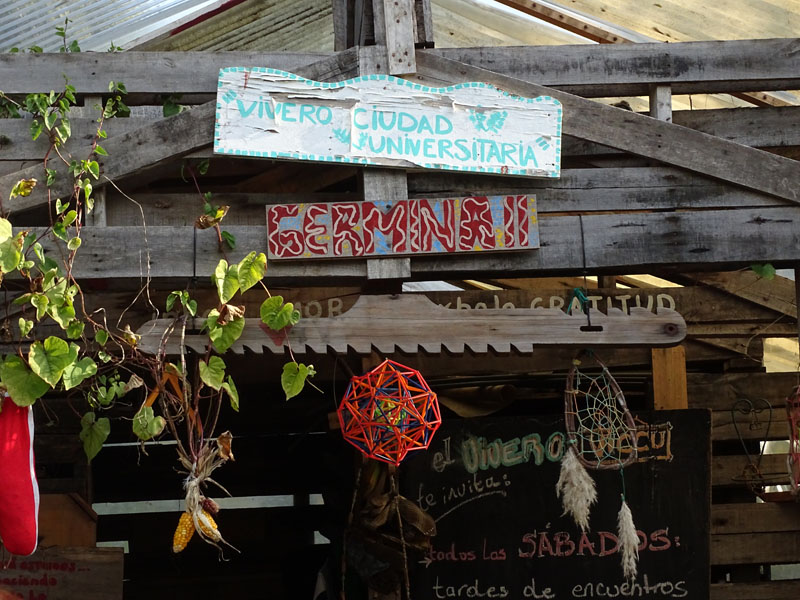 VIVERO CIUDAD
UNIVERSITARIA
GERMINAII
GRATITUD
el VIVERO
te invita:
todos los SÁBADOS:
tardes de encuentros